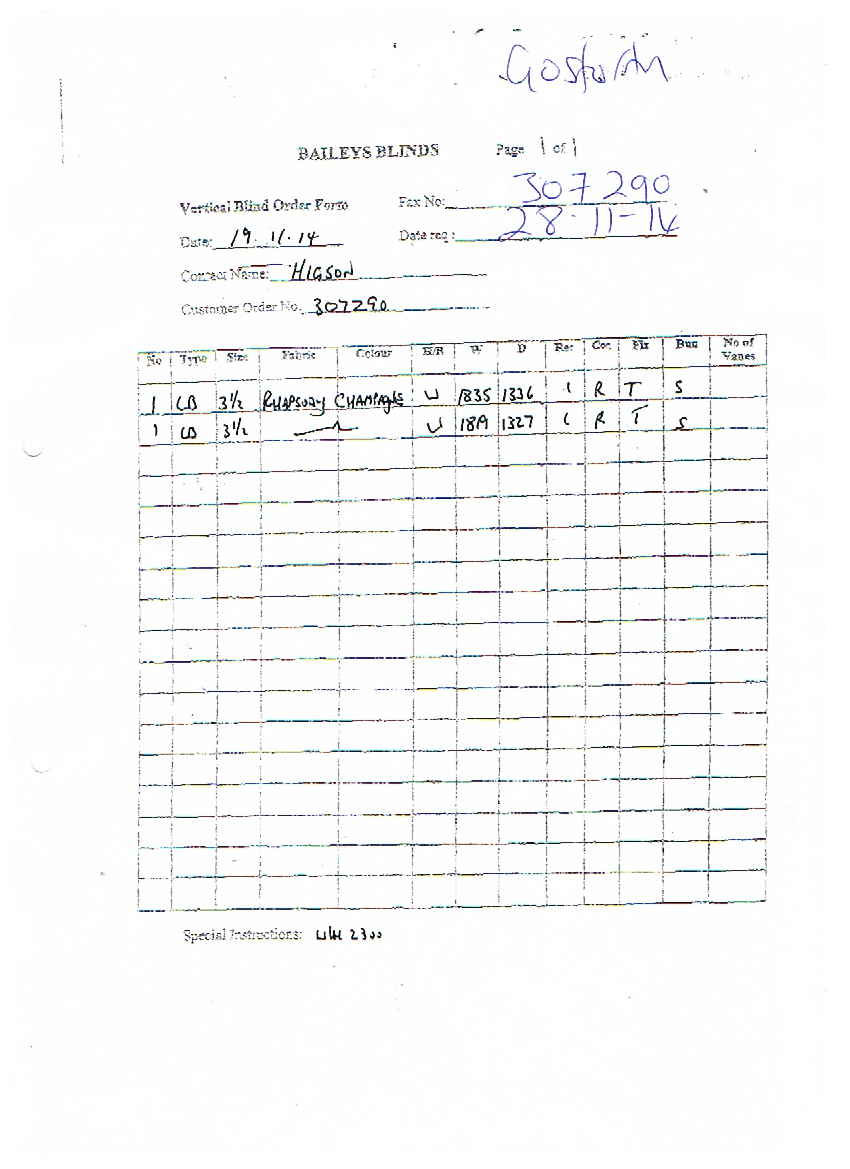 Gosforth
BAILEYS BLINDS Page 1 of 1
Vertical Blind Order Form Fax No: 307290
Date: 19.11.14 Date req: 28-11-14
Contact Name: HIGSON
Customer Order No. 307290
No Type Size Fabric Colour E/R W D Ret Con Fix Bun No of Vanes
1 CB 3½ RHAPSODY CHAMPAGNE W 1835 1336 1 R T S
1 CB 3½ W 1819 1327 1 R T S
Special Instructions: 2300